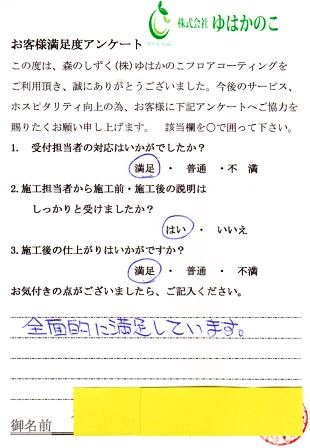 株式会社 ゆはかのこ
お客様満足度アンケート
この度は、森のしずく(株)ゆはかのこフロアコーティングを
ご利用頂き、誠にありがとうございました。今後のサービス、
ホスピタリティ向上の為、お客様に下記アンケートへご協力を
賜りたくお願い申し上げます。 該当欄を○で囲って下さい。
1. 受付担当者の対応はいかがでしたか?
満足 ・ 普通 ・不 満
2. 施工担当者から施工前・施工後の説明は
しっかりと受けましたか?
はい ・ いいえ
3. 施工後の仕上がりはいかがですか?
満足 ・ 普通 ・ 不満
お気付きの点がございましたら、ご記入ください。
全面的に満足しています。
御名前